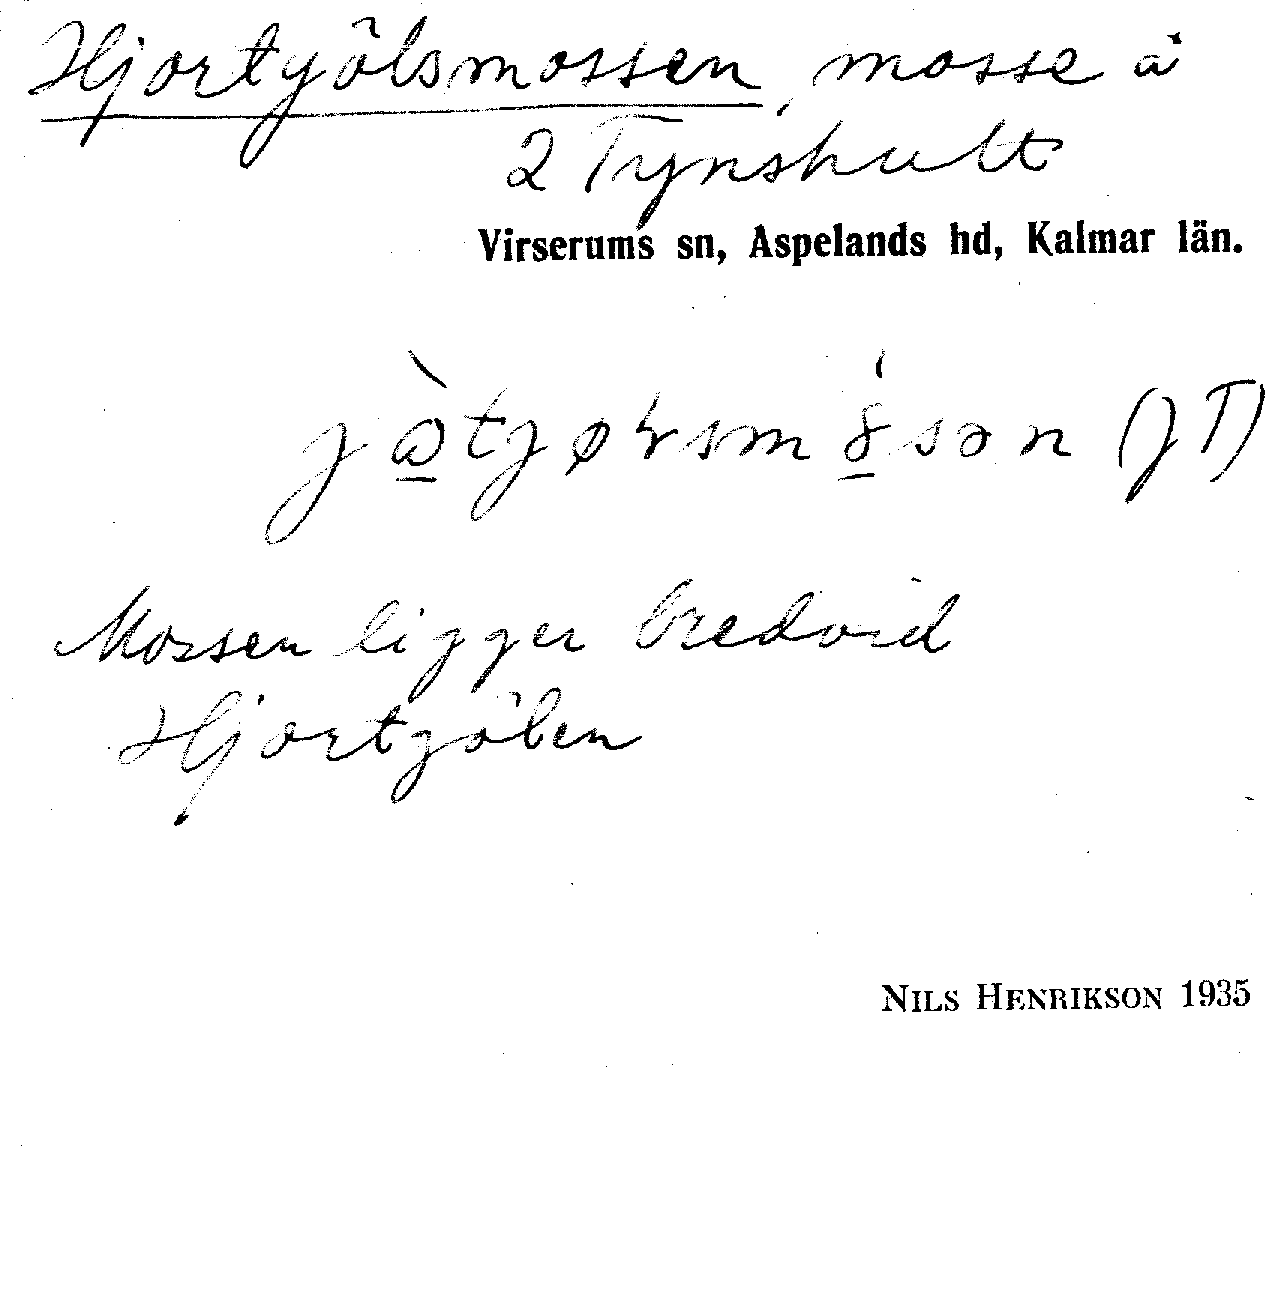 Hjortgölsmossen, mosse å
2 Tynshult
Virserums sn, Aspelands hd, Kalmar län.
(JT)
Mossen ligger bredvid
Hjortgölen
NILS HENRIKSON 1935